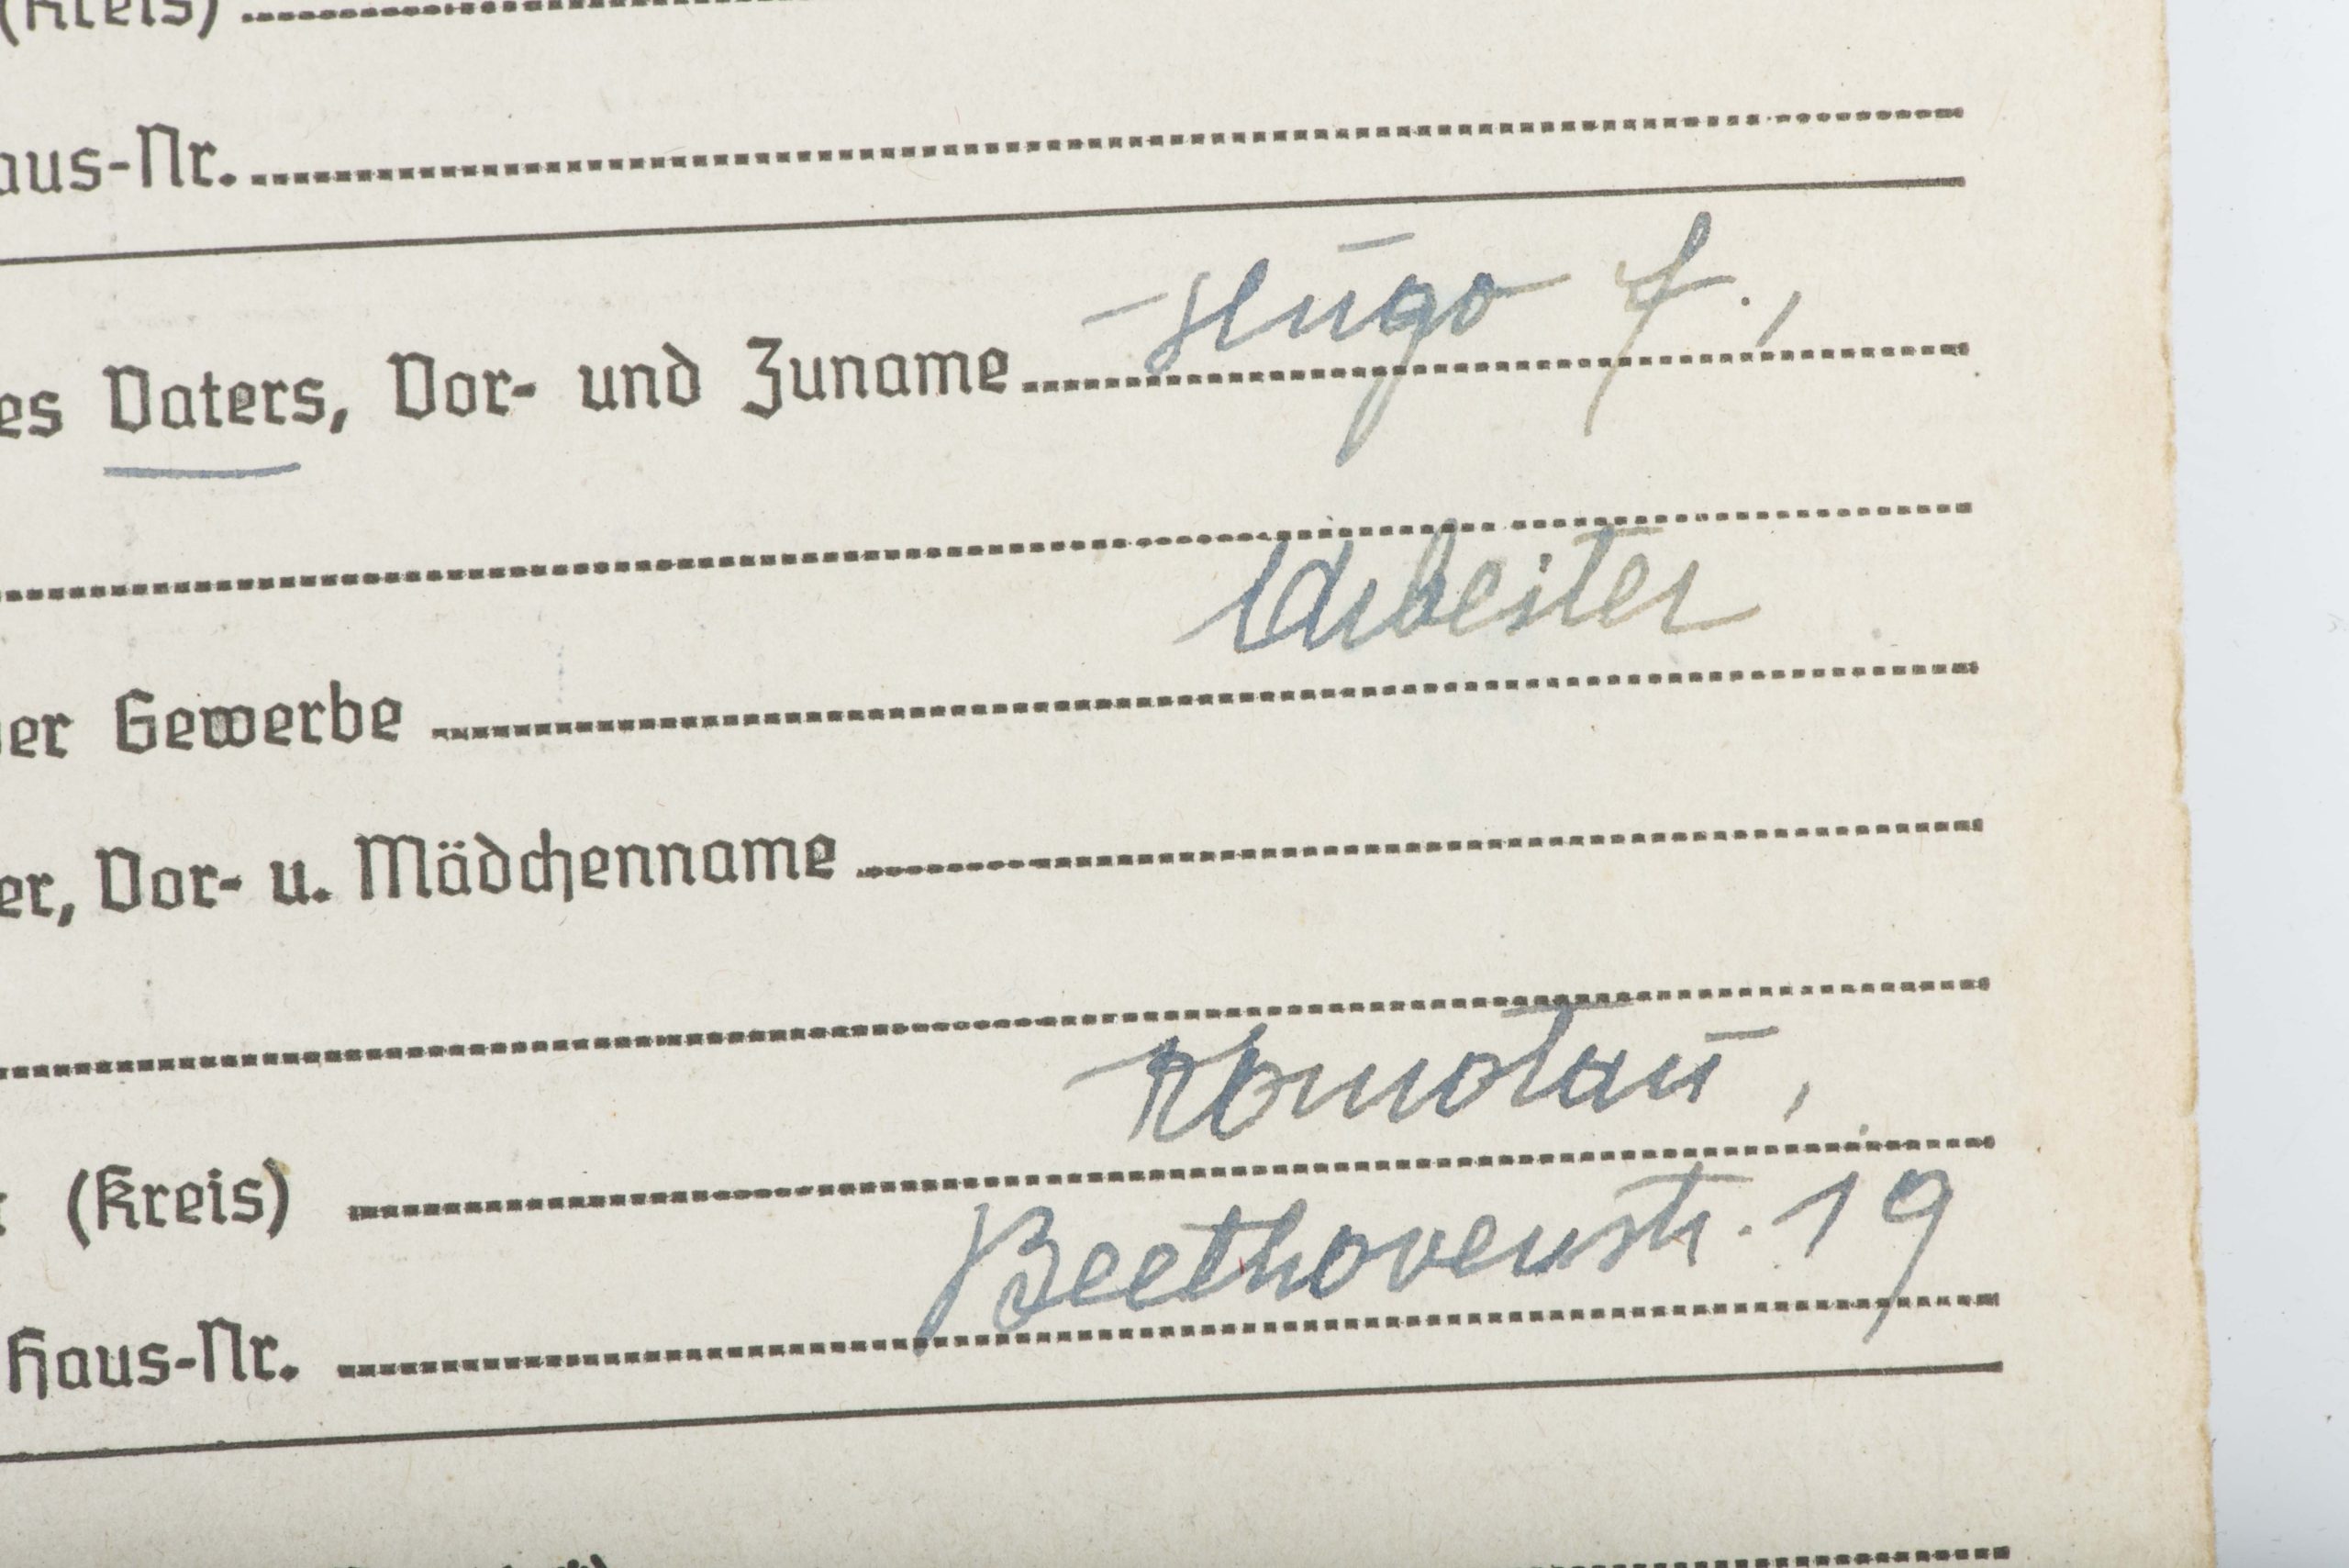 (Kreis)
aus-Nr.
es Vaters, Vor- und Zuname Hugo F.,
Arbeiter
er Gewerbe
er, Vor- u. Mädchenname
Komotau,
(Kreis)
Beethovenstr. 19
Haus-Nr.